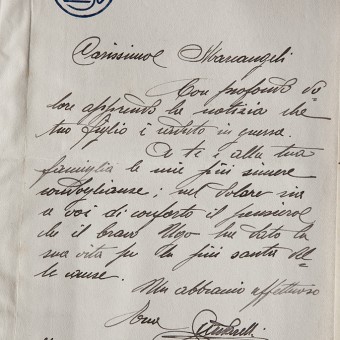 Carissimo Marcangeli
Con profondo do=
lore apprendo la notizia che
tuo figlio è caduto in guerra.
A te e alla tua
famiglia le mie più sincere
condoglianze; nel dolore sia
a voi di conforto il pensiero
che il bravo Ugo ha dato la
sua vita per la più santa del=
le cause.
Un abbraccio affettuoso